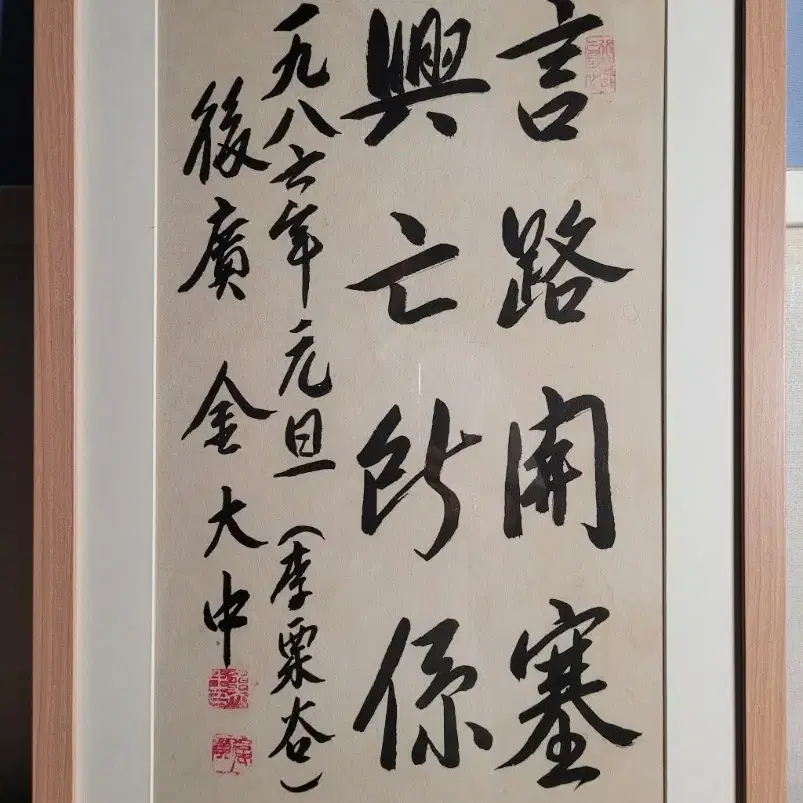 言路開塞
興亡所係
一九八六年元旦（李栗谷）
後廣 金大中